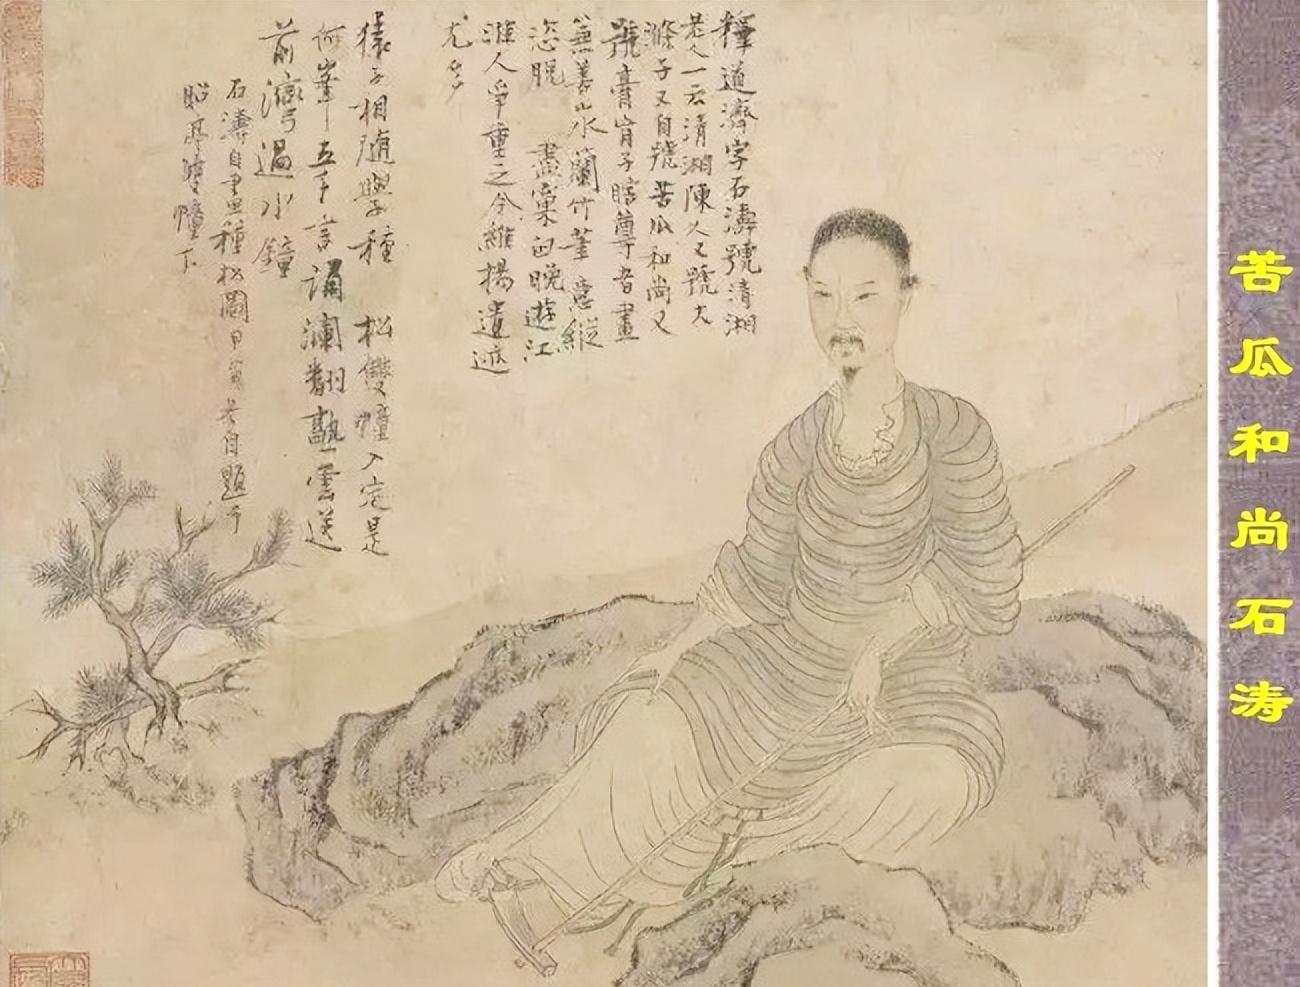 苦瓜和尚石涛
釋道濟字石濤號清湘
老人一云清湘陳人又號大
滌子又自號苦瓜和尚又
號膏肓子瞎尊者畫
兼善山水蘭竹筆意縱
恣脫盡窠臼晚遊江
淮人爭重之今維揚遺迹
尤多
猿子相隨學種松雙幢入定是
何峯五千言誦瀾翻熟雲送
前灣過水鐘
石濤自畫種松圖甲寅冬自題于
昭亭雙幢下